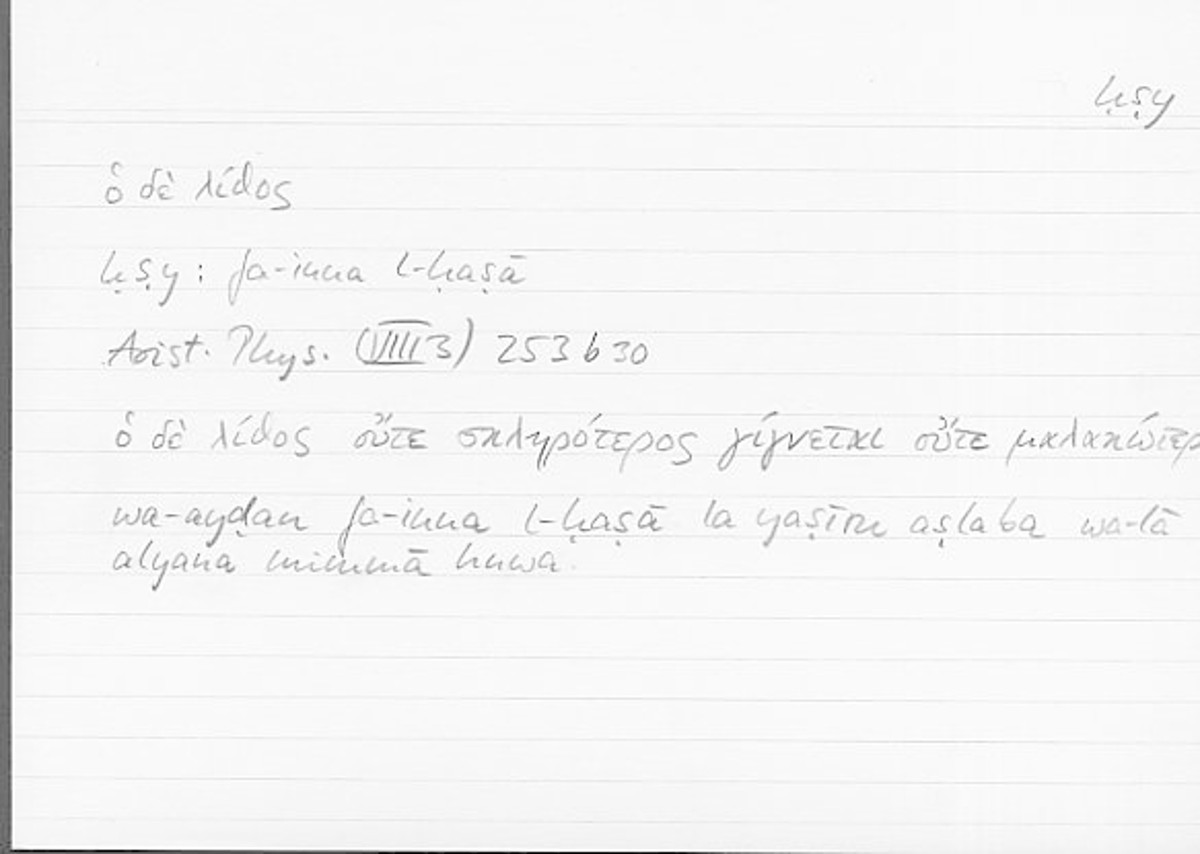 ḥṣy
ὁ δὲ λίθος
ḥṣy: fa-inna l-ḥaṣā
Arist. Phys. (VIII 3) 253 b 30
ὁ δὲ λίθος οὔτε σκληρότερος γίγνεται οὔτε μαλακώτερ
wa-ayḍan fa-inna l-ḥaṣā la yaṣīru aṣlaba wa-lā
alyana mimmā huwa.